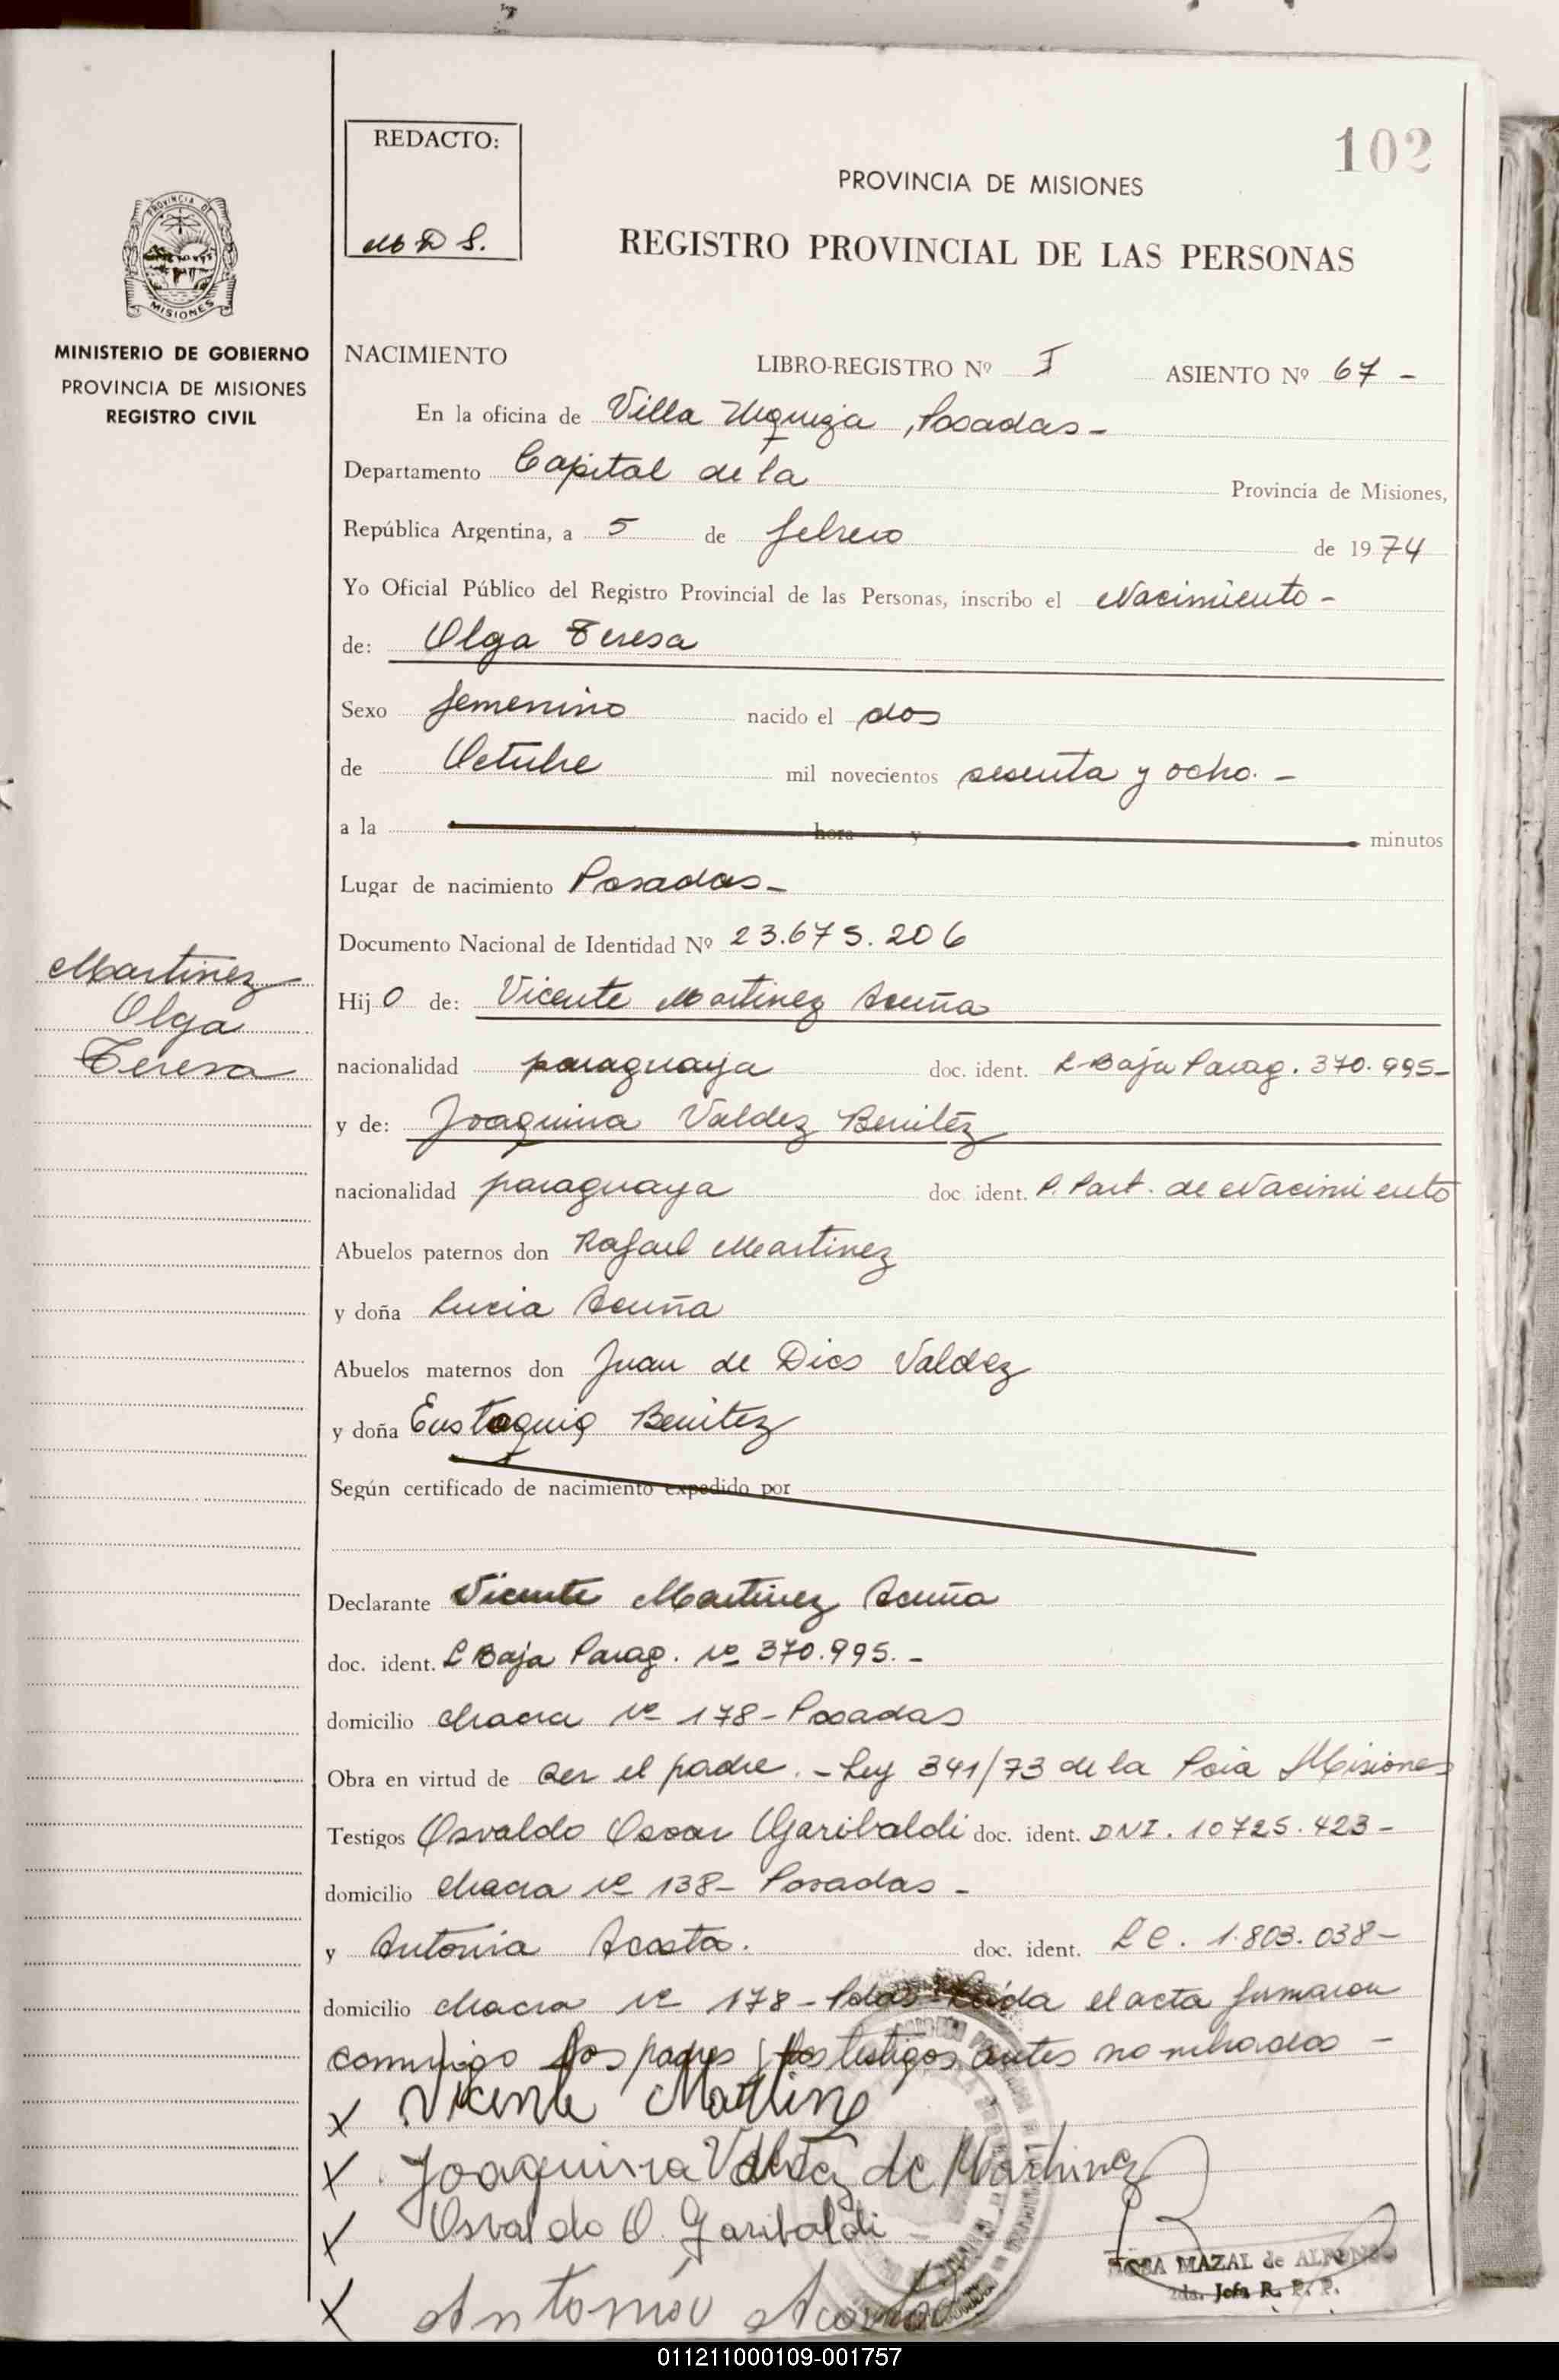 102
REDACTO:
M D S.
PROVINCIA DE MISIONES
REGISTRO PROVINCIAL DE LAS PERSONAS
PROVINCIA DE
MISIONES
MINISTERIO DE GOBIERNO
PROVINCIA DE MISIONES
REGISTRO CIVIL
NACIMIENTO LIBRO-REGISTRO Nº I ASIENTO Nº 67 -
En la oficina de Villa Urquiza, Posadas -
Departamento Capital de la Provincia de Misiones,
República Argentina, a 5 de febrero de 1974
Yo Oficial Público del Registro Provincial de las Personas, inscribo el Nacimiento -
de: Olga Teresa
Sexo femenino nacido el dos
de Octubre mil novecientos sesenta y ocho. -
a la hora y minutos
Lugar de nacimiento Posadas -
Documento Nacional de Identidad Nº 23.675.206
Martinez
Olga
Teresa
Hij o de: Vicente Martinez Acuña
nacionalidad paraguaya doc. ident. L Baja Parag. 370.995 -
y de: Joaquina Valdez Benitez
nacionalidad paraguaya doc. ident. P. Part. de Nacimiento
Abuelos paternos don Rafael Martinez
y doña Lucia Acuña
Abuelos maternos don Juan de Dios Valdez
y doña Eustaquia Benitez
Según certificado de nacimiento expedido por
Declarante Vicente Martinez Acuña
doc. ident. L Baja Parag. Nº 370.995. -
domicilio chacra Nº 178 - Posadas
Obra en virtud de ser el padre. - Ley 341/73 de la Pcia Misiones
Testigos Osvaldo Oscar Garibaldi doc. ident. DNI. 10725.423 -
domicilio chacra Nº 138 - Posadas -
y Antonia Acosta. doc. ident. L C. 1.803.038 -
domicilio chacra Nº 178 - Pdas - Leida el acta firmaron
conmigo los padres y los testigos antes nombrados -
x Vicente Martine
x Joaquina Valdez de Martinez
x Osvaldo O. Garibaldi
x Antonia Acosta
ROSA MAZAL de ALFONSO
2da. Jefa R. P. P.
011211000109-001757